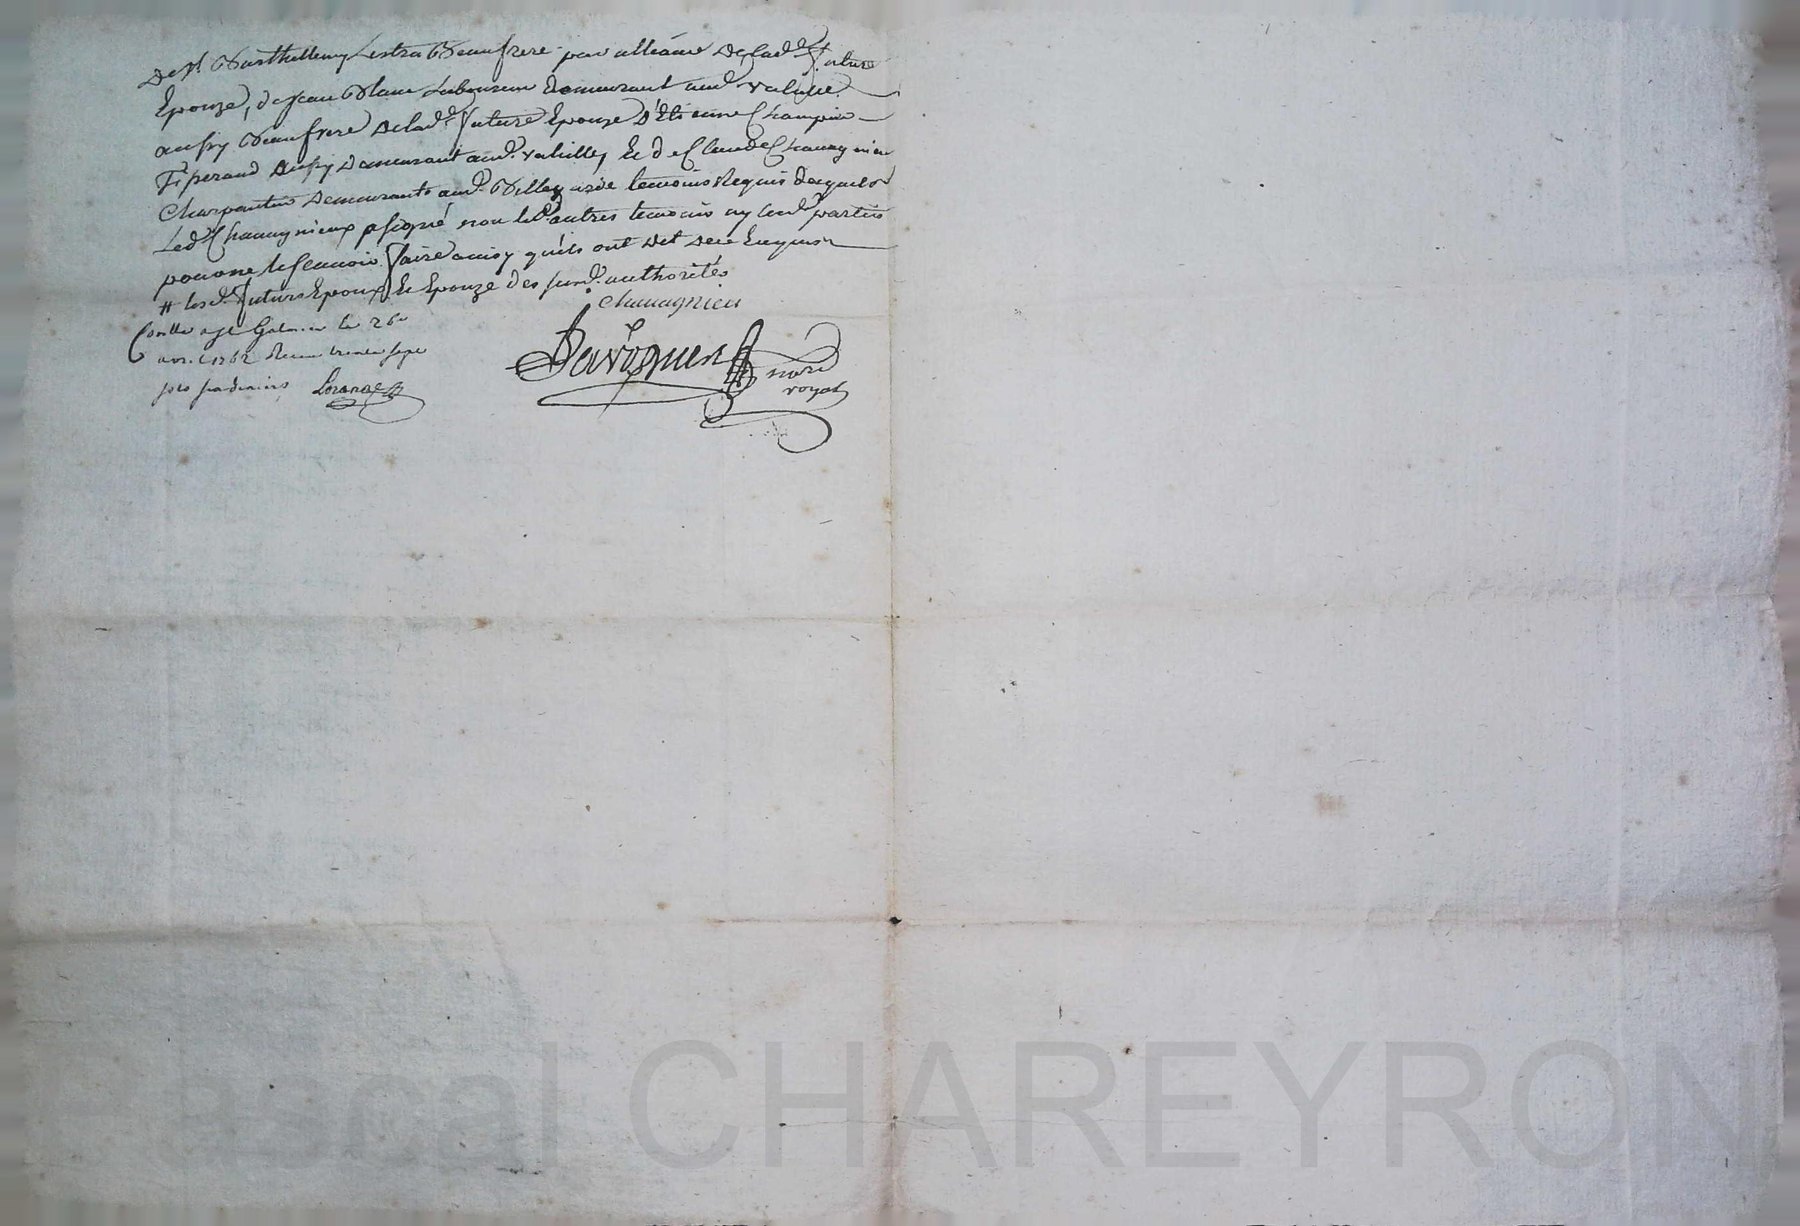 De Sr. Barthellemy Lestra Beaufrere par alliance de lad.e future
Epouze, de Jean Blanc Laboureur demeurant aud. valeille
aussy Beaufrere de lad.e future Epouze d'Etienne Champier
Tisserand aussy demeurant aud. valeille, Et de Claude Chauagnieu
Charpentier demeurants aud. temoins Requis desquels
Led. Chauagnieux a signé non les autres temoins ny lesd. partis
pour ne le scauoir faire ainsy quils ont dit de ce Enquis
# lesd. futurs Epoux Et Epouze des susd. authorités
chauagnieu
Controllé a St Galmier le 26e
avril 1762 Receu trente sept
sols six deniers
royal
Pascal CHAREYRON